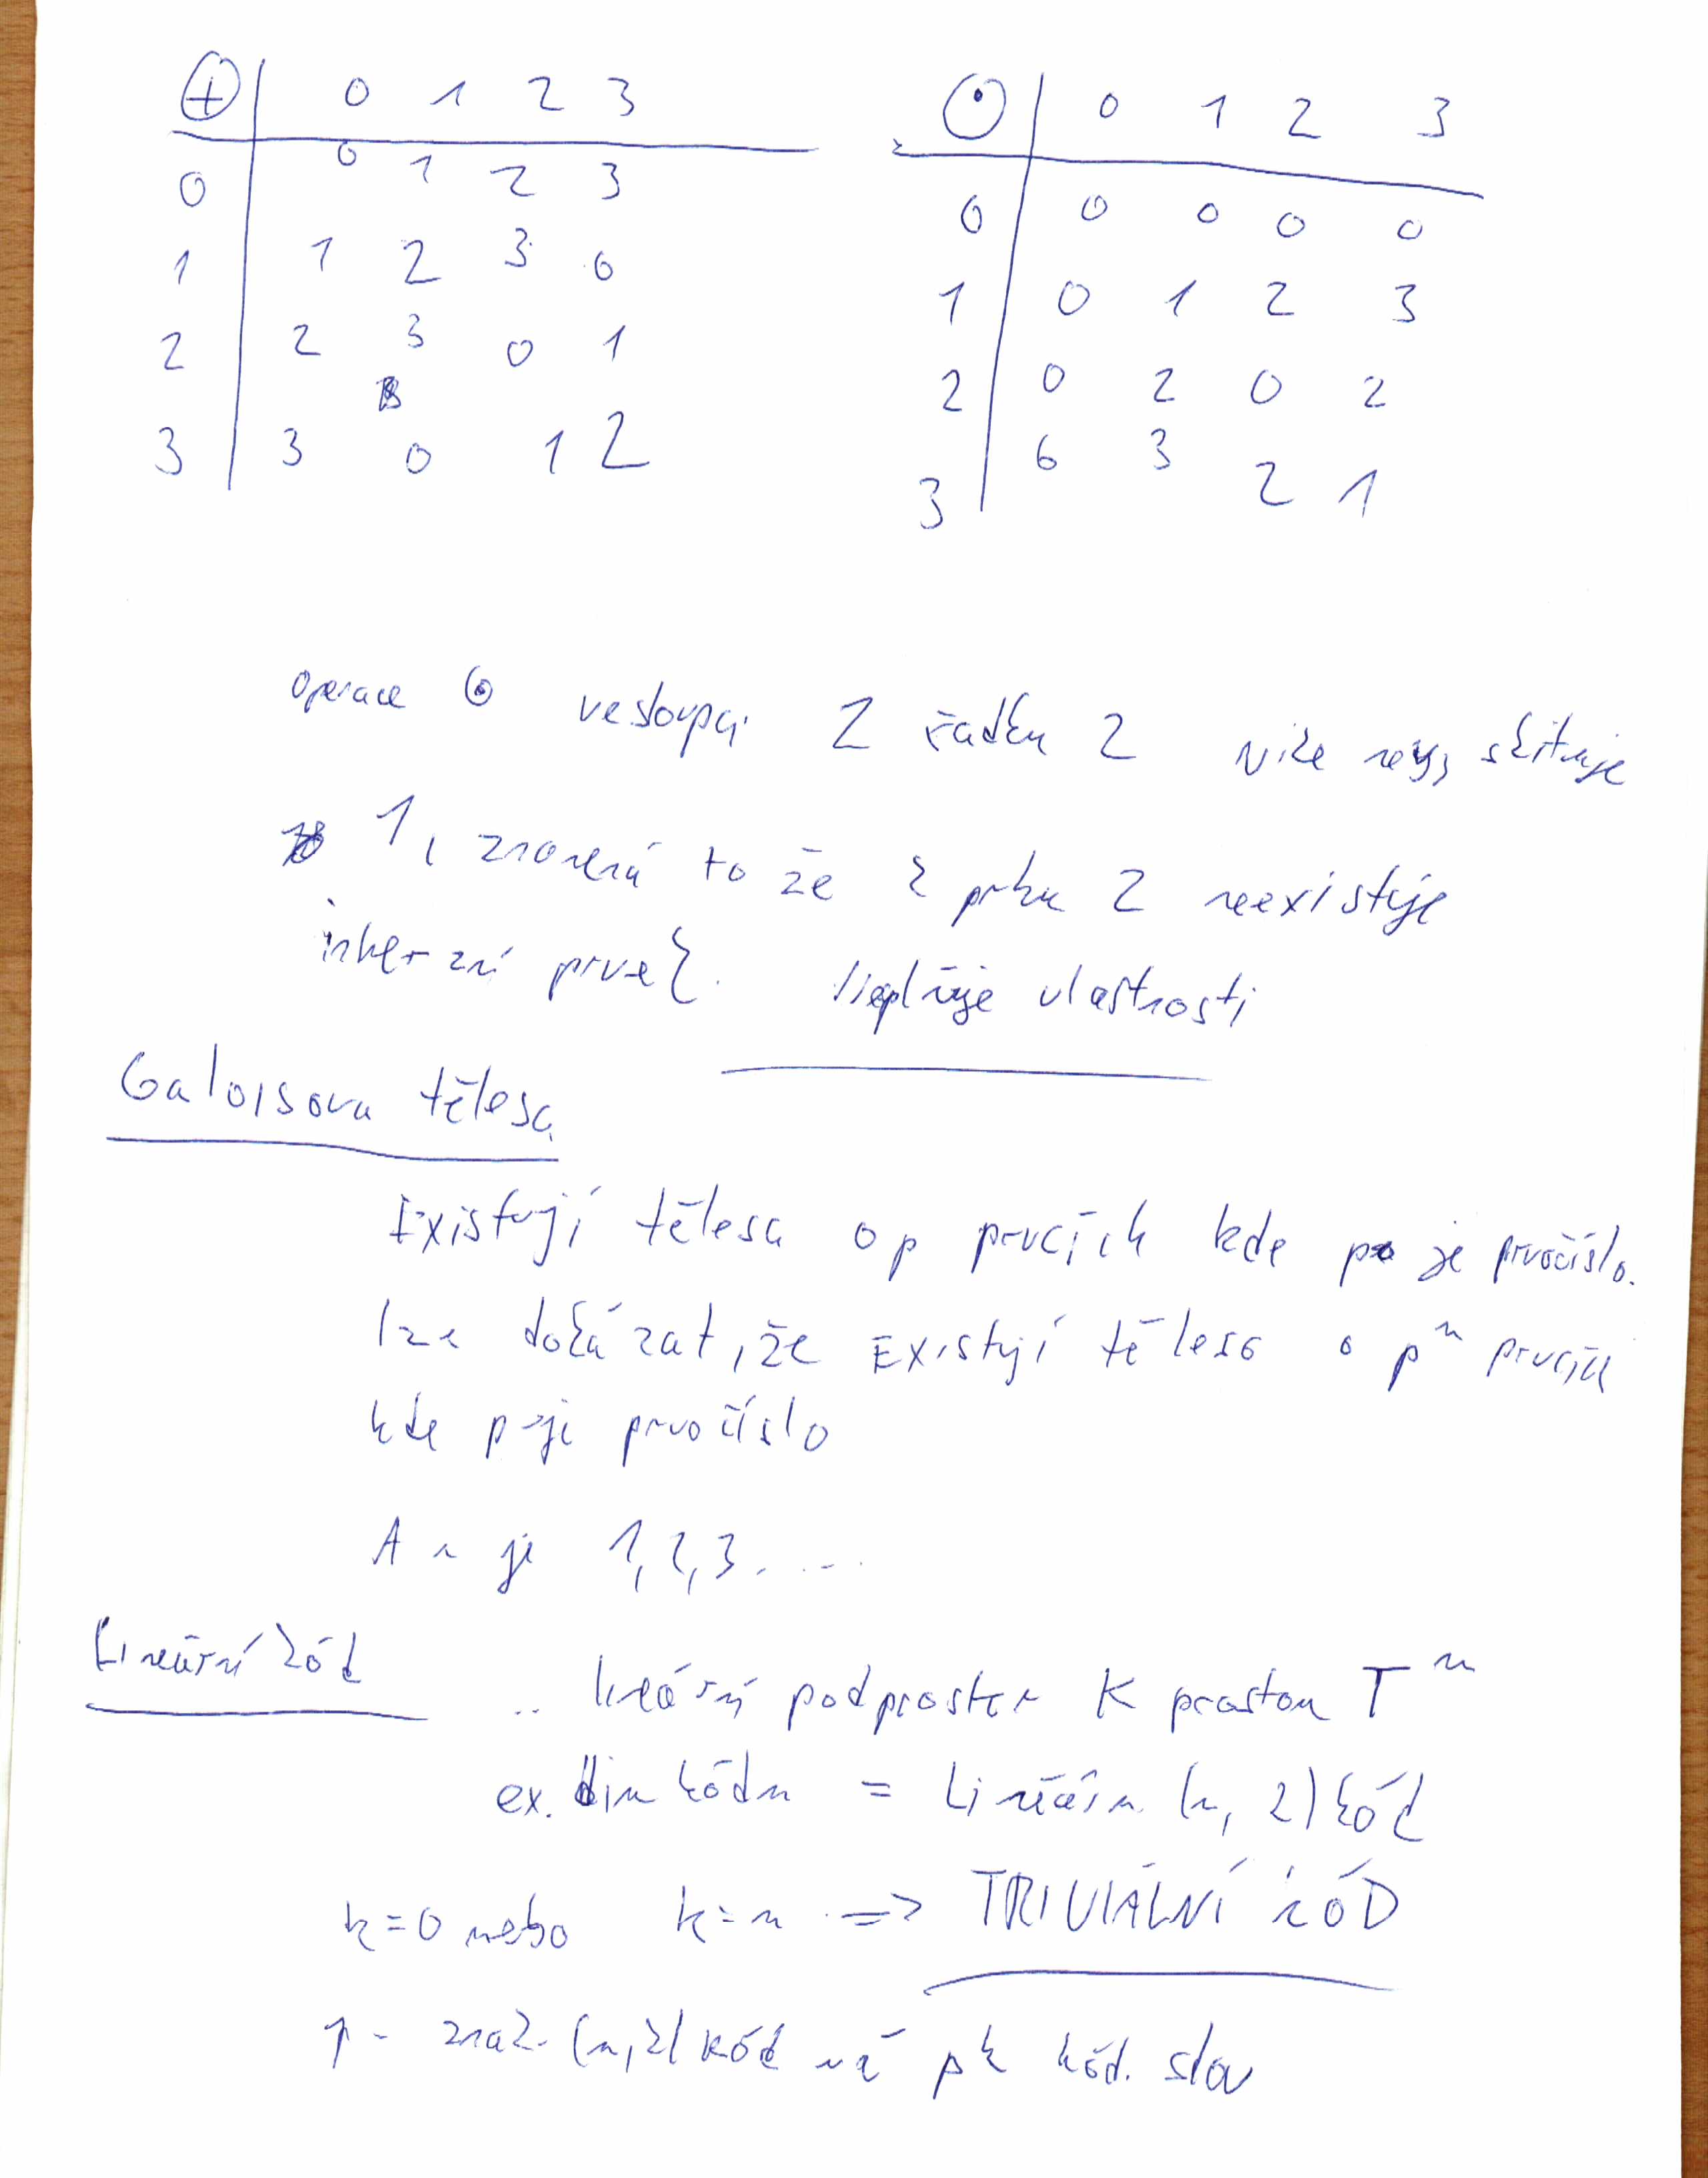 ⊕ 0 1 2 3
0 0 1 2 3
1 1 2 3 0
2 2 3 0 1
3 3 0 1 2
⊙ 0 1 2 3
0 0 0 0 0
1 0 1 2 3
2 0 2 0 2
3 0 3 2 1
operace ⊙ ve sloupci 2 řádku 2
1, znamená to že k prvku 2 neexistuje
inverzní prvek. Nesplňuje vlastnosti
Galoisova tělesa
Existují tělesa o p prvcích kde p je prvočíslo.
lze dokázat, že Existují tělesa o pⁿ prvcích
kde p je prvočíslo
A n je 1, 2, 3....
Lineární kód .. lineární podprostor K prostoru Tⁿ
ex. dim kódu = Lineární (n, k) kód
k=0 nebo k=n => TRIVIÁLNÍ KÓD
p - znak. (n,k) kód má pᵏ kód. slov